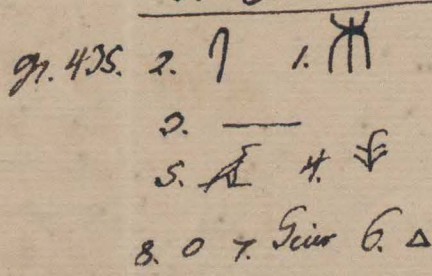 gr. 435. 2. 1.
3.
5. 4.
8. 7. Geier 6.